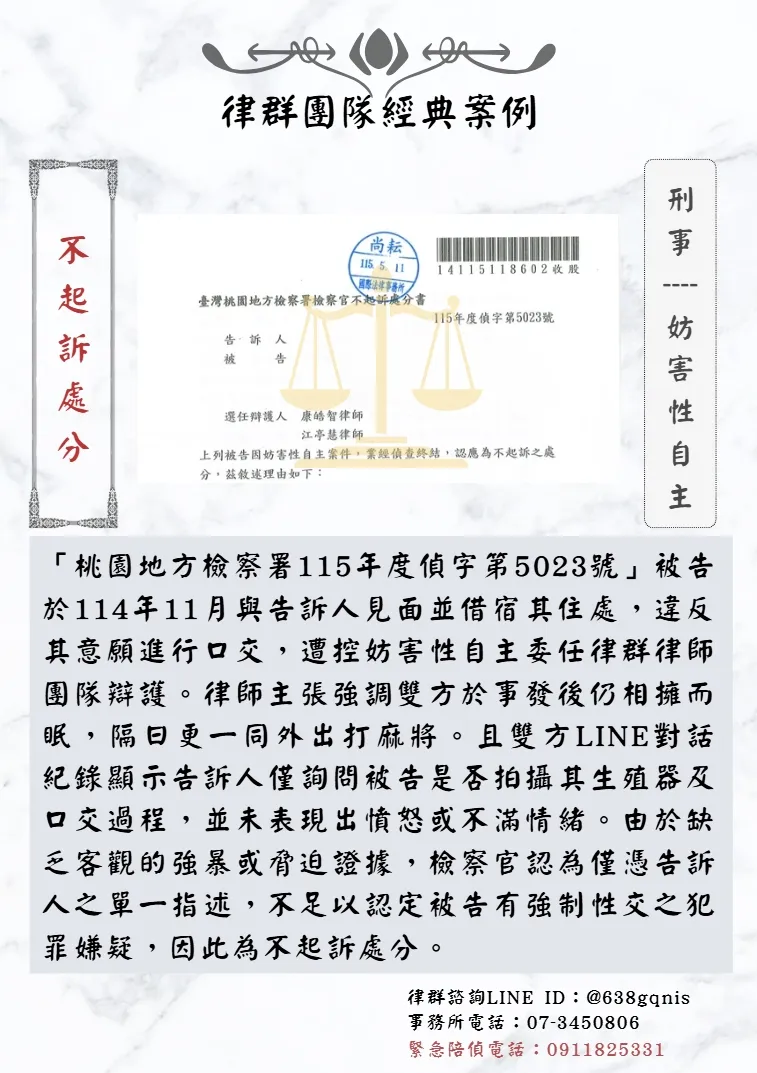 律群團隊經典案例
不起訴處分
刑事----妨害性自主
尚耘
115. 5. 11
國際法律事務所
14115118602收股
臺灣桃園地方檢察署檢察官不起訴處分書
115年度偵字第5023號
告訴人
被告
選任辯護人 康皓智律師
江亭慧律師
上列被告因妨害性自主案件，業經偵查終結，認應為不起訴之處
分，茲敘述理由如下：
「桃園地方檢察署115年度偵字第5023號」被告
於114年11月與告訴人見面並借宿其住處，違反
其意願進行口交，遭控妨害性自主委任律群律師
團隊辯護。律師主張強調雙方於事發後仍相擁而
眠，隔日更一同外出打麻將。且雙方LINE對話
紀錄顯示告訴人僅詢問被告是否拍攝其生殖器及
口交過程，並未表現出憤怒或不滿情緒。由於缺
乏客觀的強暴或脅迫證據，檢察官認為僅憑告訴
人之單一指述，不足以認定被告有強制性交之犯
罪嫌疑，因此為不起訴處分。
律群諮詢LINE ID：@638gqnis
事務所電話：07-3450806
緊急陪偵電話：0911825331